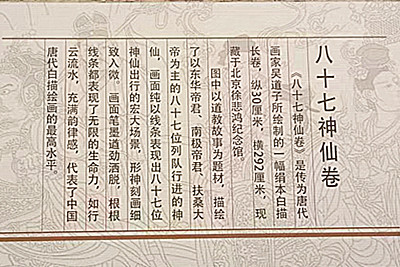 八十七神仙卷
《八十七神仙卷》是传为唐代
画家吴道子所绘制的一幅绢本白描
长卷，纵30厘米，横292厘米，现
藏于北京徐悲鸿纪念馆。
图中以道教故事为题材，描绘
了以东华帝君、南极帝君、扶桑大
帝为主的八十七位列队行进的神
仙，画面纯以线条表现出八十七位
神仙出行的宏大场景，形神刻画细
致入微，画面笔墨遒劲洒脱，根根
线条都表现了无限的生命力，如行
云流水，充满韵律感，代表了中国
唐代白描绘画的最高水平。